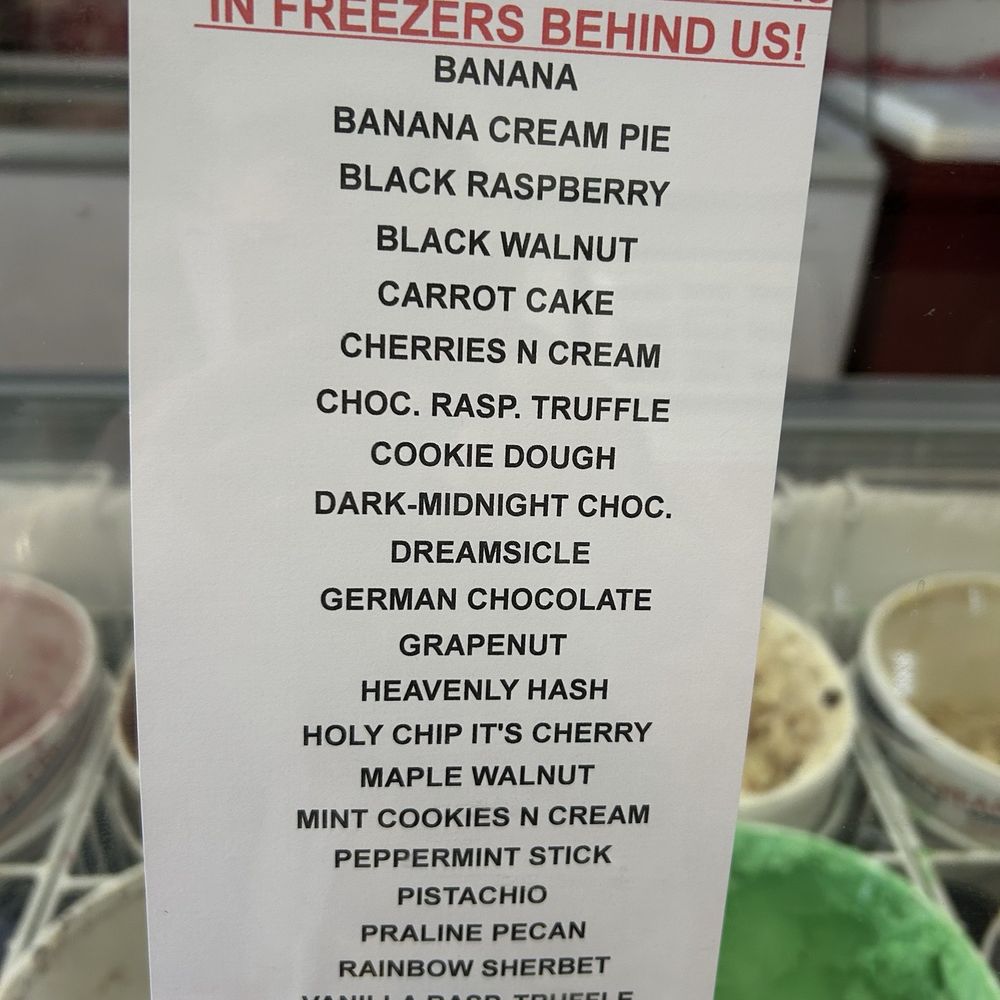 IN FREEZERS BEHIND US!
BANANA
BANANA CREAM PIE
BLACK RASPBERRY
BLACK WALNUT
CARROT CAKE
CHERRIES N CREAM
CHOC. RASP. TRUFFLE
COOKIE DOUGH
DARK-MIDNIGHT CHOC.
DREAMSICLE
GERMAN CHOCOLATE
GRAPENUT
HEAVENLY HASH
HOLY CHIP IT'S CHERRY
MAPLE WALNUT
MINT COOKIES N CREAM
PEPPERMINT STICK
PISTACHIO
PRALINE PECAN
RAINBOW SHERBET
VANILLA RASP. TRUFFLE